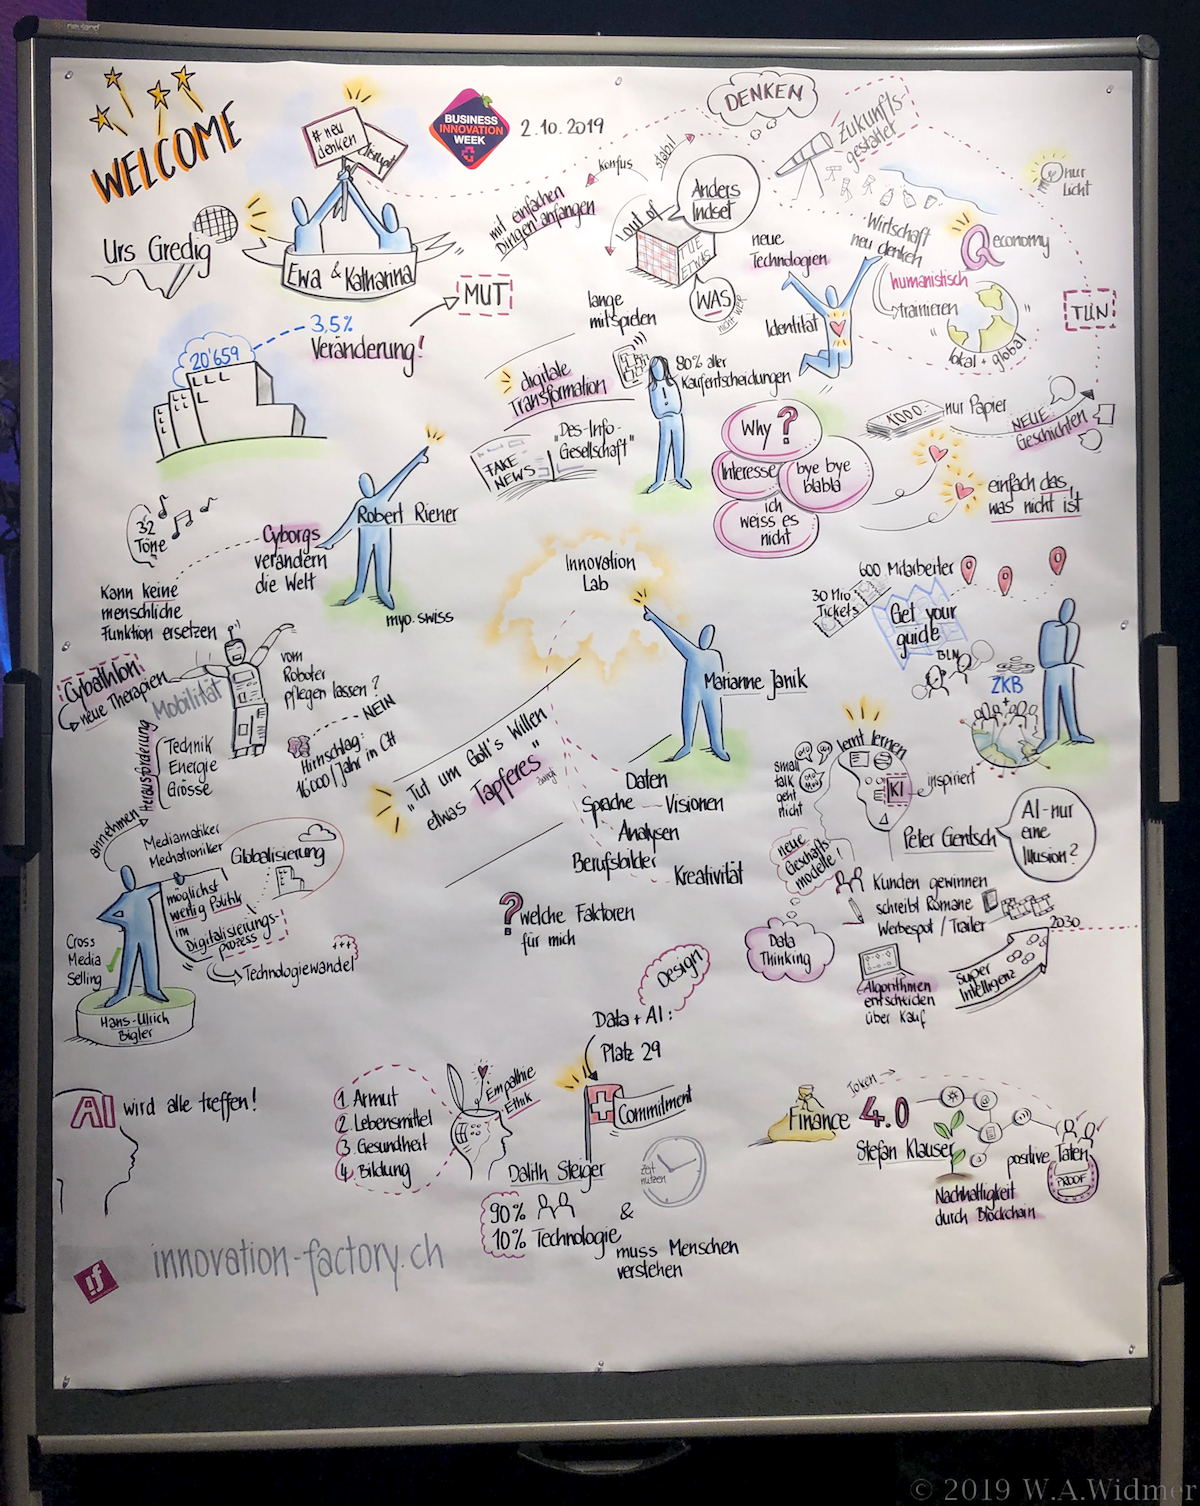 neuland
WELCOME
# neu
denken
disrupt
BUSINESS
INNOVATION
WEEK
2.10.2019
Urs Gredig
Ewa & Katharina
MUT
20'659
3,5%
Veränderung!
DENKEN
Zukunfts-
gestalter
nur
Licht
konfus
stabil
mit einfachen
Dingen anfangen
out of
Anders
Indset
TUE
ETWAS
WAS
nicht WER
neue
Technologien
Identität
Wirtschaft
neu denken
humanistisch
trainieren
Q economy
lokal + global
TUN
lange
mitspielen
digitale
Transformation
80% aller
Kaufentscheidungen
FAKE
NEWS
"Des-Info-
Gesellschaft"
Why ?
Interesse
bye bye
blabla
ich
weiss es
nicht
1000.-
nur Papier
NEUE
Geschichten
einfach das,
was nicht ist
32
Töne
Robert Riener
Cyborgs
verändern
die Welt
myo.swiss
Kann keine
menschliche
Funktion ersetzen
Cybathlon
neue Therapien
Mobilität
vom
Roboter
pflegen lassen?
NEIN
Hirnschlag:
16'000/Jahr in CH
Herausforderung
Technik
Energie
Grösse
annehmen
Innovation
Lab
Marianne Janik
"Tut um Gott's Willen
etwas Tapferes"
Zwingli
Daten
Sprache
Visionen
Analysen
Berufsbilder
Kreativität
? welche Faktoren
für mich
600 Mitarbeiter
30 Mio
Tickets
Get your
guide
BLN
ZKB
+
lernt lernen
small
talk
geht
nicht
KI
inspiriert
Peter Gentsch
AI-nur
eine
Illusion?
neue
Geschäfts-
modelle!
Kunden gewinnen
schreibt Romane
Werbespot / Trailer
Data
Thinking
Algorithmen
entscheiden
über Kauf
Super
Intelligenz
2030
Mediamatiker
Mechatroniker
Globalisierung
möglichst
wenig Politik
im
Digitalisierungs-
prozess
+++
Technologiewandel
Cross
Media
Selling
Hans-Ulrich
Bigler
AI wird alle treffen!
1. Armut
2. Lebensmittel
3. Gesundheit
4. Bildung
Empathie
Ethik
Design
Data + AI:
Platz 29
Commitment
Dalith Steiger
Zeit
nutzen
90%
10% Technologie
&
muss Menschen
verstehen
Finance 4.0
Token
Stefan Klauser
positive Taten
PROOF
Nachhaltigkeit
durch Blockchain
if
innovation-factory.ch
© 2019 W.A.Widmer